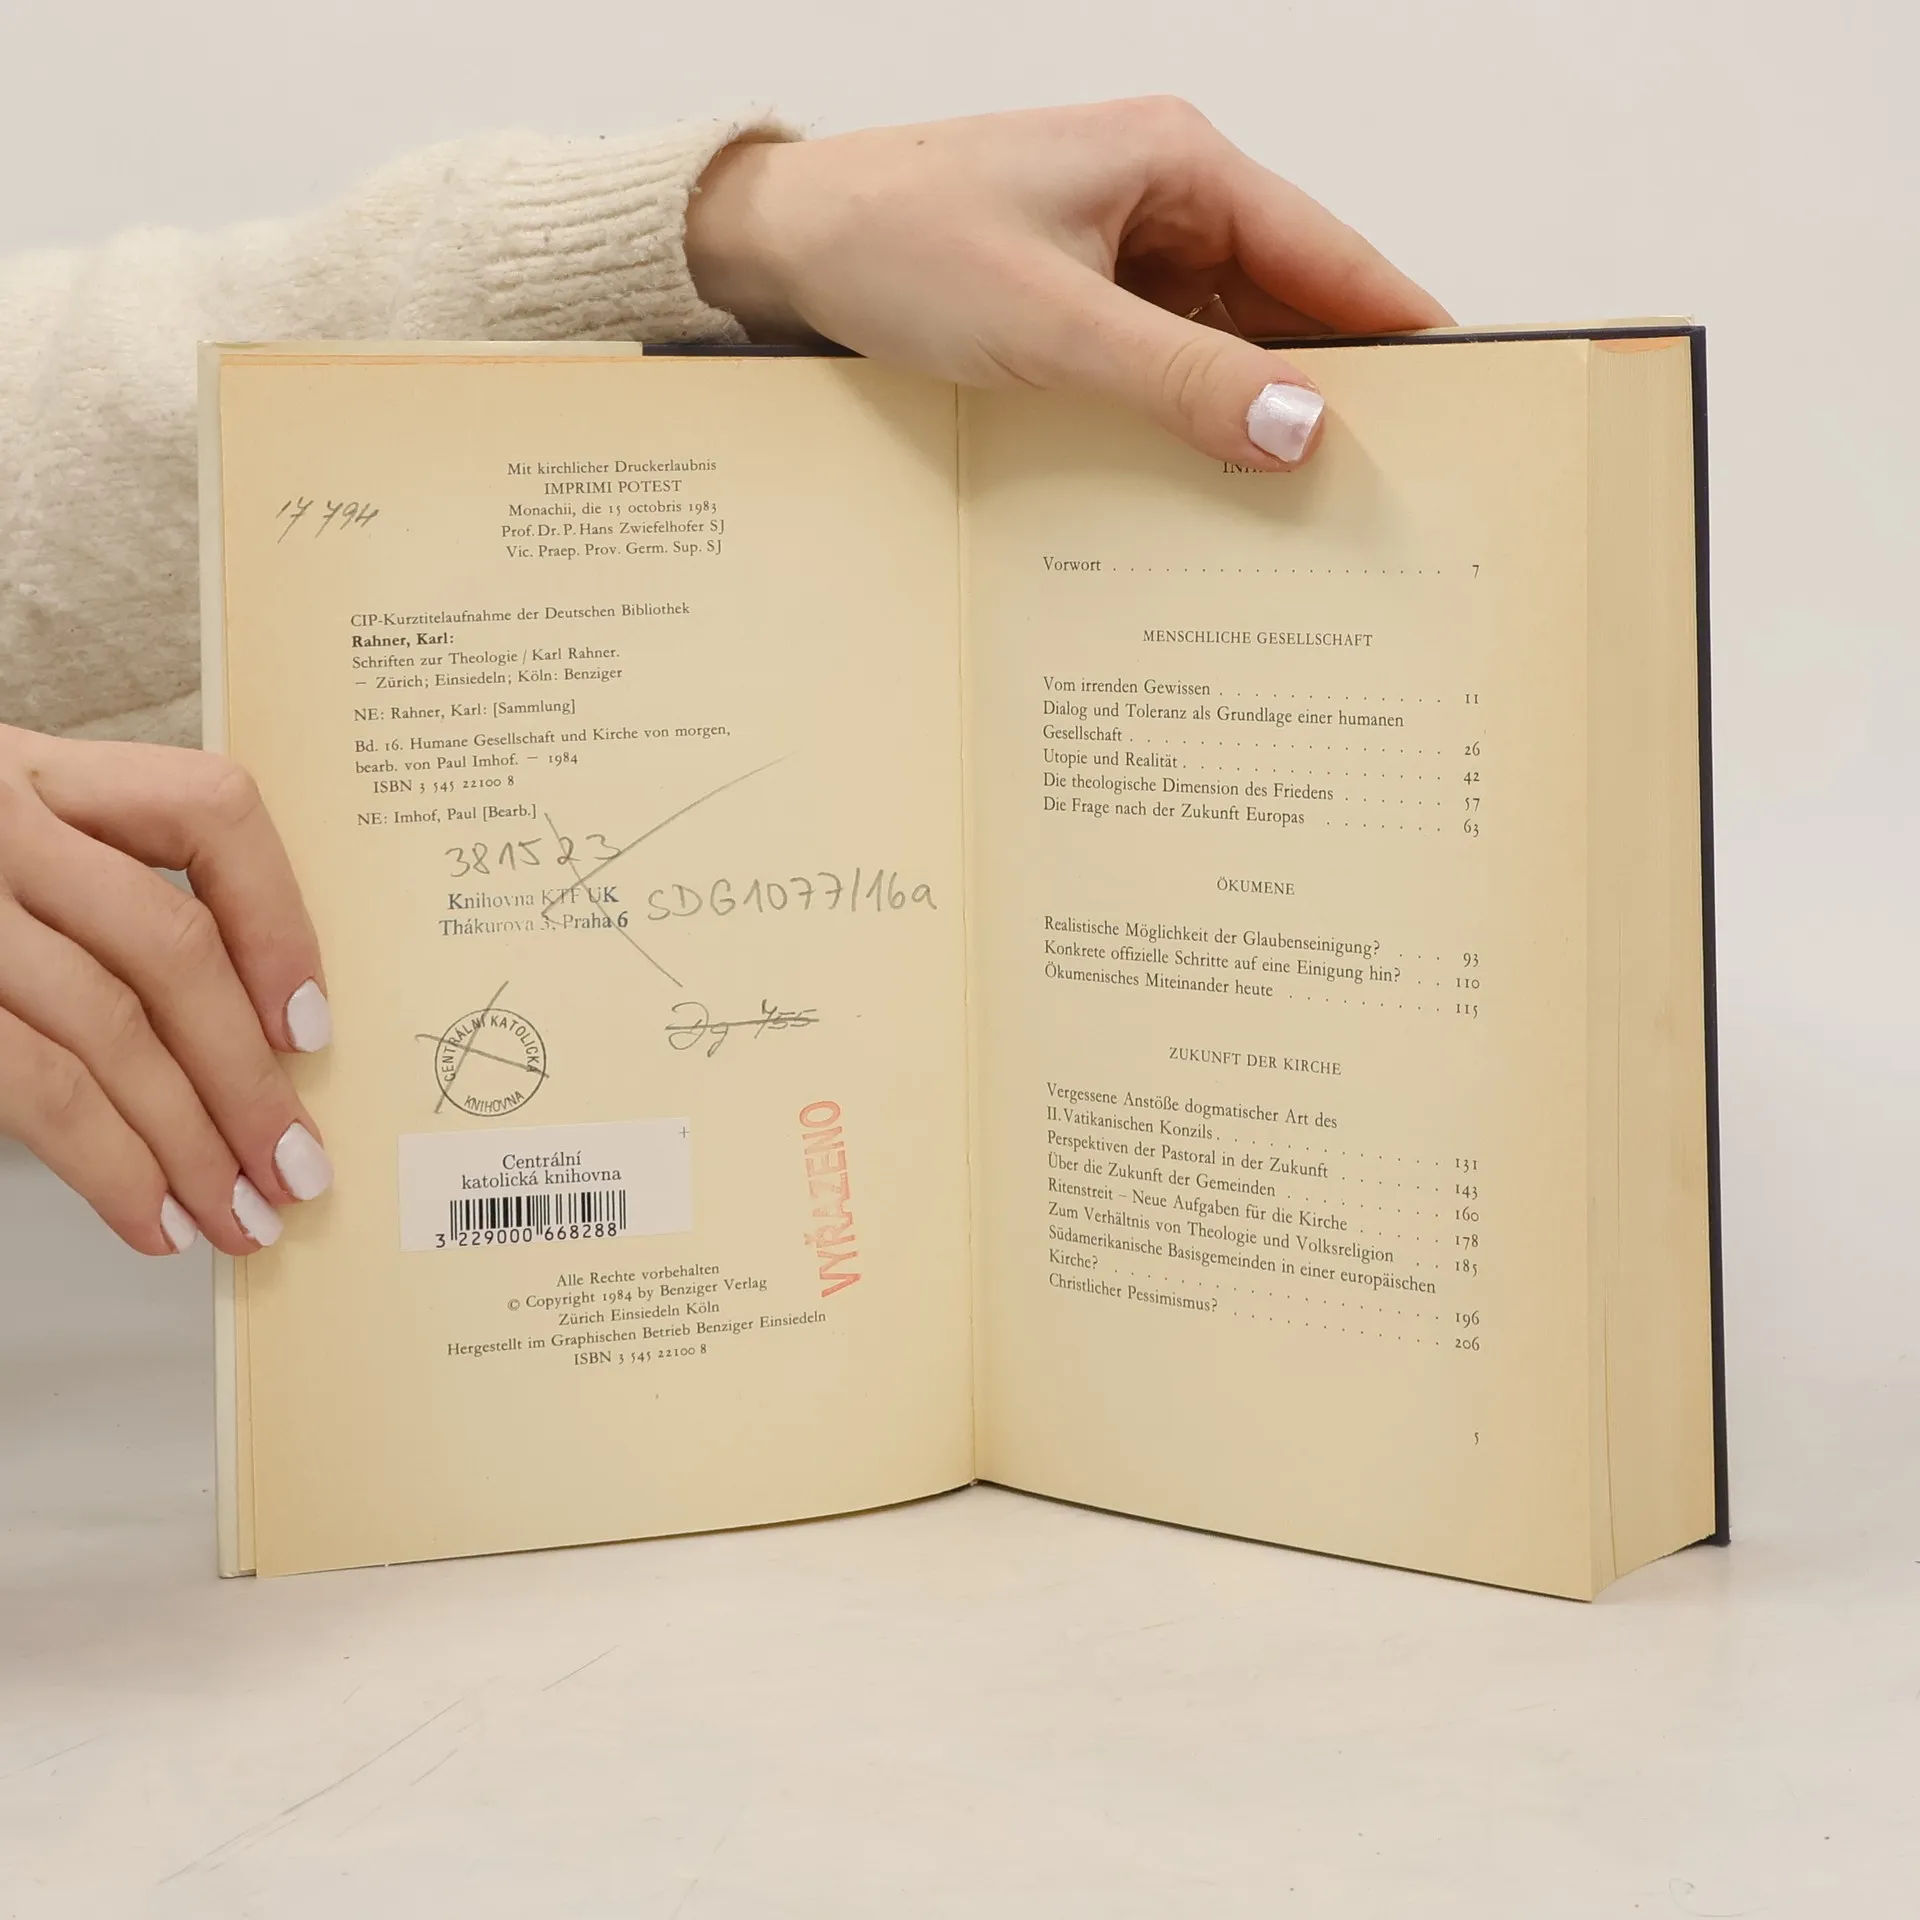 17 794
Mit kirchlicher Druckerlaubnis
IMPRIMI POTEST
Monachii, die 15 octobris 1983
Prof. Dr. P. Hans Zwiefelhofer SJ
Vic. Praep. Prov. Germ. Sup. SJ
CIP-Kurztitelaufnahme der Deutschen Bibliothek
Rahner, Karl:
Schriften zur Theologie / Karl Rahner.
– Zürich; Einsiedeln; Köln: Benziger
NE: Rahner, Karl: [Sammlung]
Bd. 16. Humane Gesellschaft und Kirche von morgen,
bearb. von Paul Imhof. – 1984
ISBN 3 545 22100 8
NE: Imhof, Paul [Bearb.]
381523
Knihovna KTF UK
Thákurova 3, Praha 6
SDG1077/16a
Dg 455
CENTRÁLNÍ KATOLICKÁ
KNIHOVNA
Centrální
katolická knihovna
3 229000 668288
VYŘAZENO
Alle Rechte vorbehalten
© Copyright 1984 by Benziger Verlag
Zürich Einsiedeln Köln
Hergestellt im Graphischen Betrieb Benziger Einsiedeln
ISBN 3 545 22100 8
Vorwort . . . . . . . . . . . . . . . . . . . 7
MENSCHLICHE GESELLSCHAFT
Vom irrenden Gewissen . . . . . . . . . . . . . 11
Dialog und Toleranz als Grundlage einer humanen
Gesellschaft . . . . . . . . . . . . . . . . . 26
Utopie und Realität . . . . . . . . . . . . . . 42
Die theologische Dimension des Friedens . . . . . . 57
Die Frage nach der Zukunft Europas . . . . . . . 63
ÖKUMENE
Realistische Möglichkeit der Glaubenseinigung? . . . 93
Konkrete offizielle Schritte auf eine Einigung hin? . . 110
Ökumenisches Miteinander heute . . . . . . . . 115
ZUKUNFT DER KIRCHE
Vergessene Anstöße dogmatischer Art des
II. Vatikanischen Konzils . . . . . . . . . . . . 131
Perspektiven der Pastoral in der Zukunft . . . . . . 143
Über die Zukunft der Gemeinden . . . . . . . . 160
Ritenstreit – Neue Aufgaben für die Kirche . . . . . 178
Zum Verhältnis von Theologie und Volksreligion . . 185
Südamerikanische Basisgemeinden in einer europäischen
Kirche? . . . . . . . . . . . . . . . . . 196
Christlicher Pessimismus? . . . . . . . . . . . 206
5